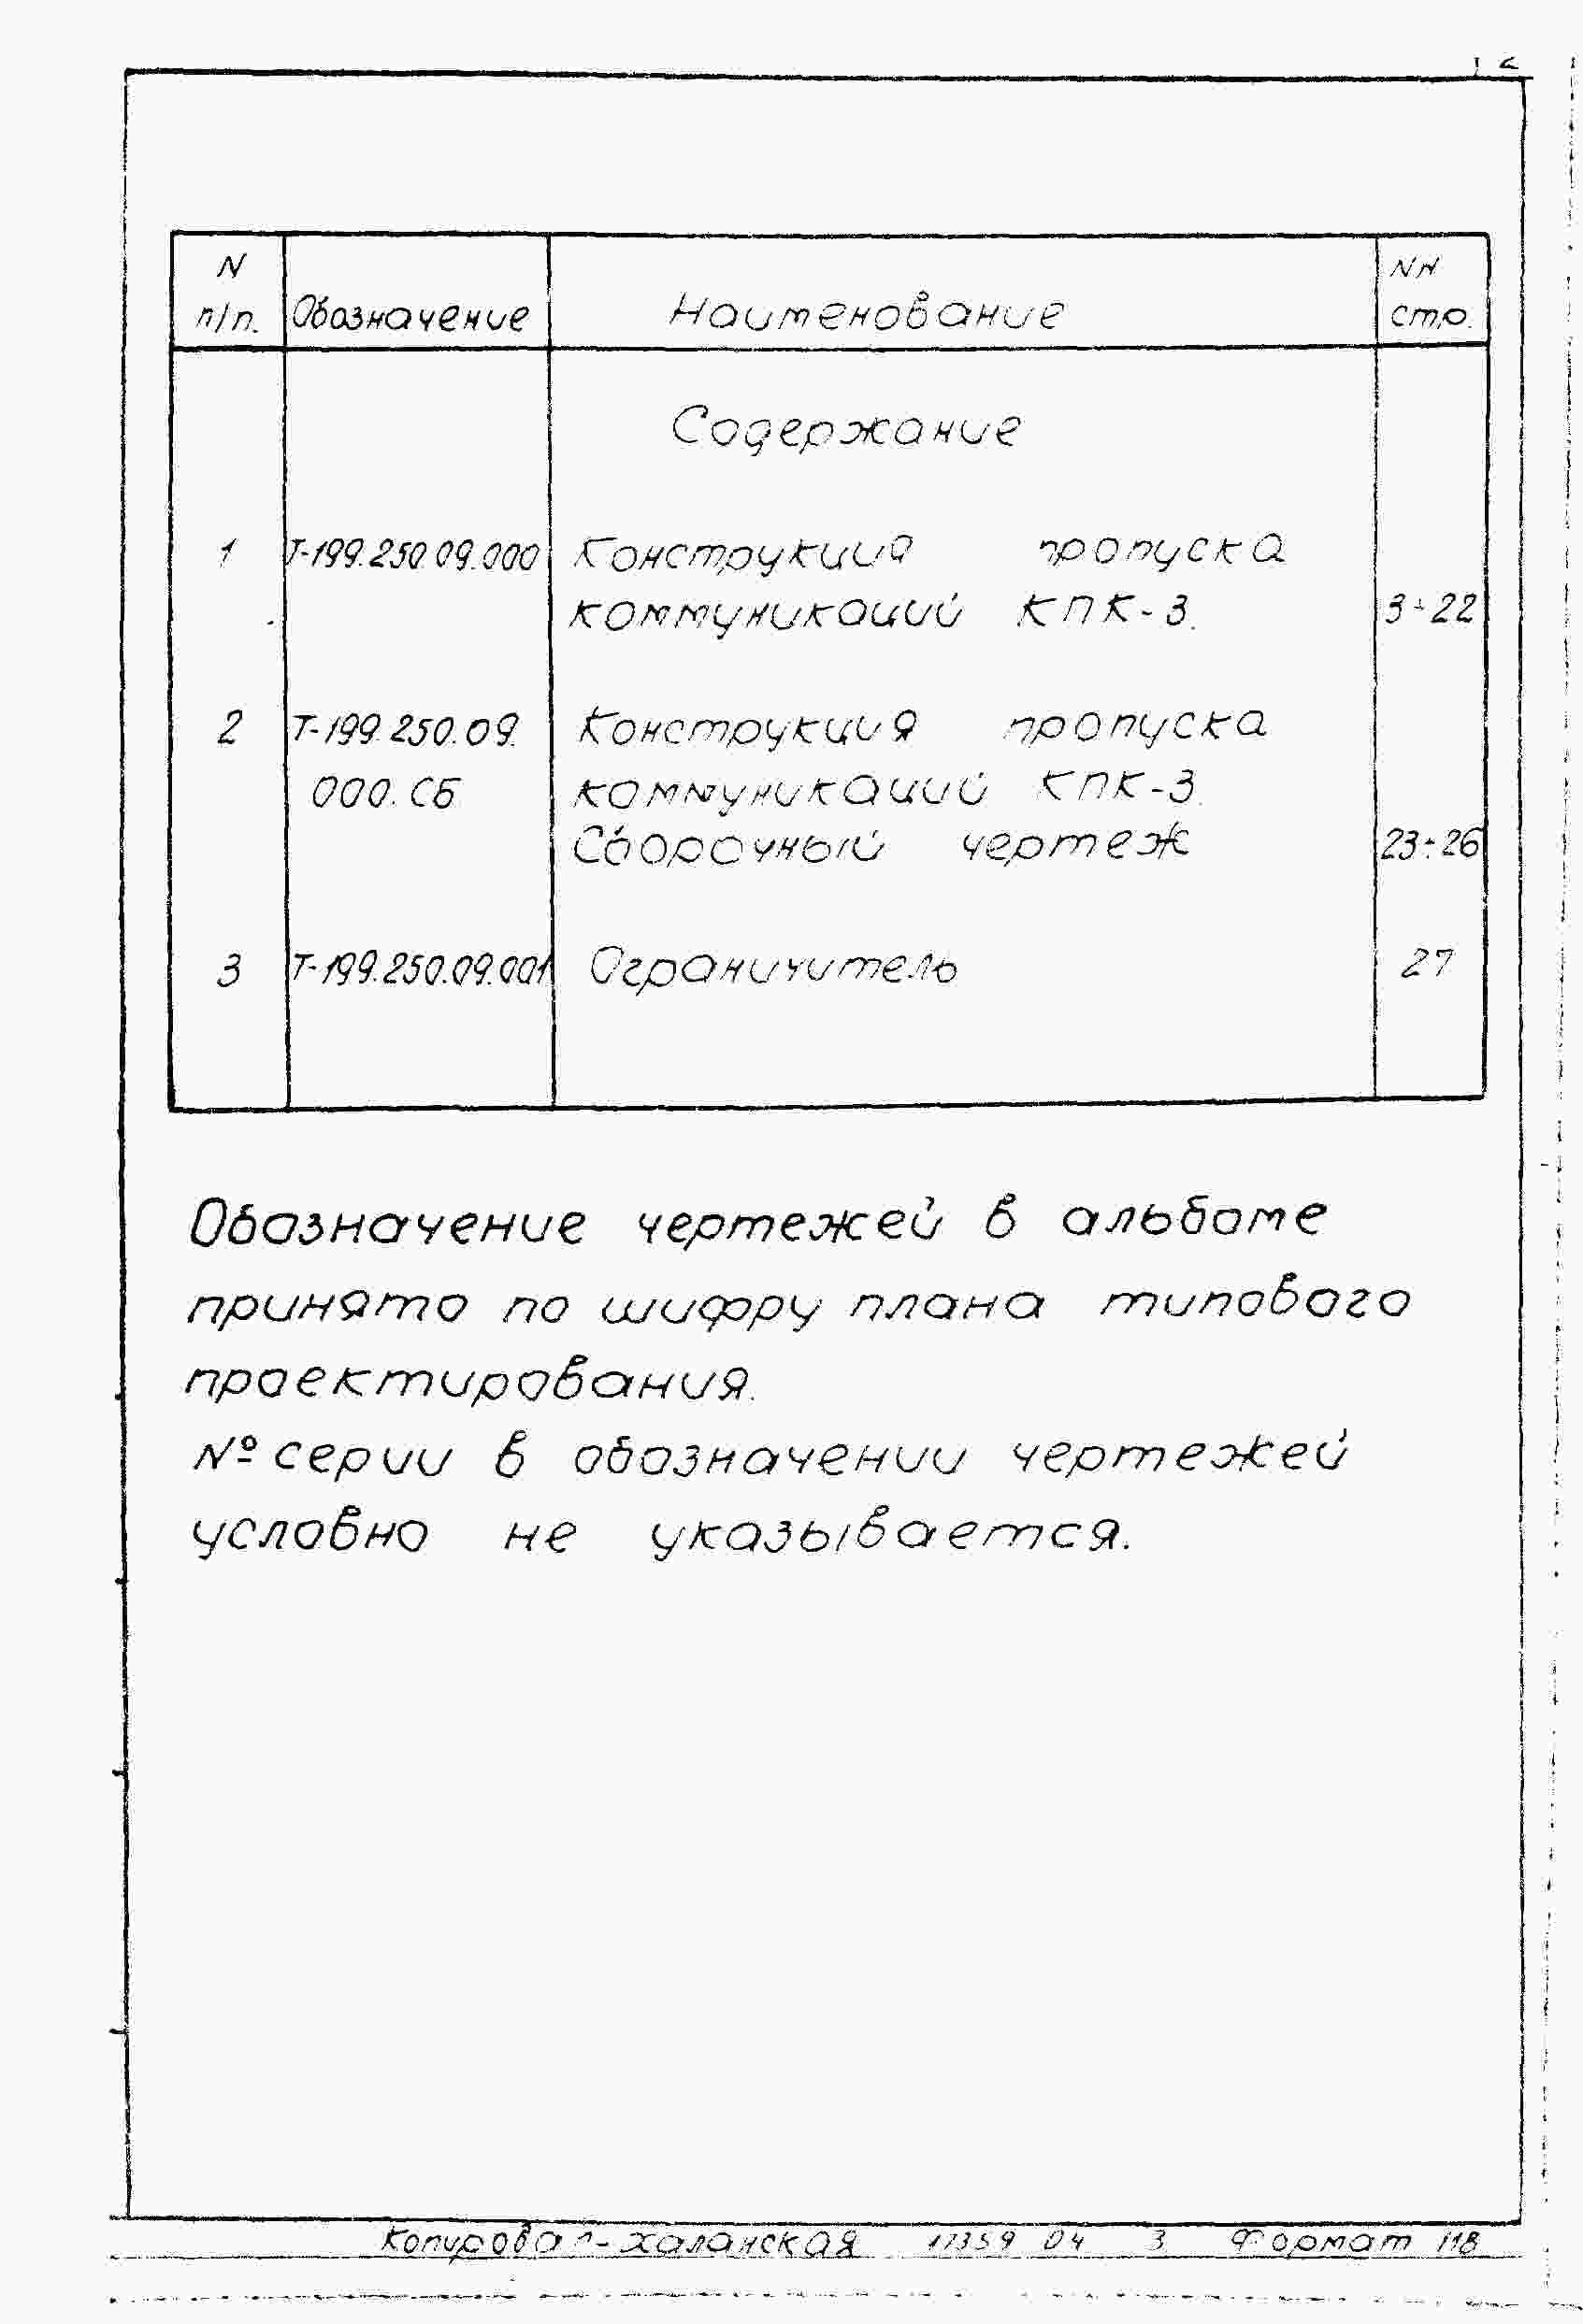 N п/п. Обозначение Наименование NN стр.
Содержание
1 Т-199.250.09.000 Конструкция пропуска
коммуникаций КПК-3. 3÷22
2 Т-199.250.09. Конструкция пропуска
000.СБ коммуникаций КПК-3.
Сборочный чертеж 23÷26
3 Т-199.250.09.001 Ограничитель 27
Обозначение чертежей в альбоме
принято по шифру плана типового
проектирования.
№ серии в обозначении чертежей
условно не указывается.
Копировал - Халанская 04 3 Формат